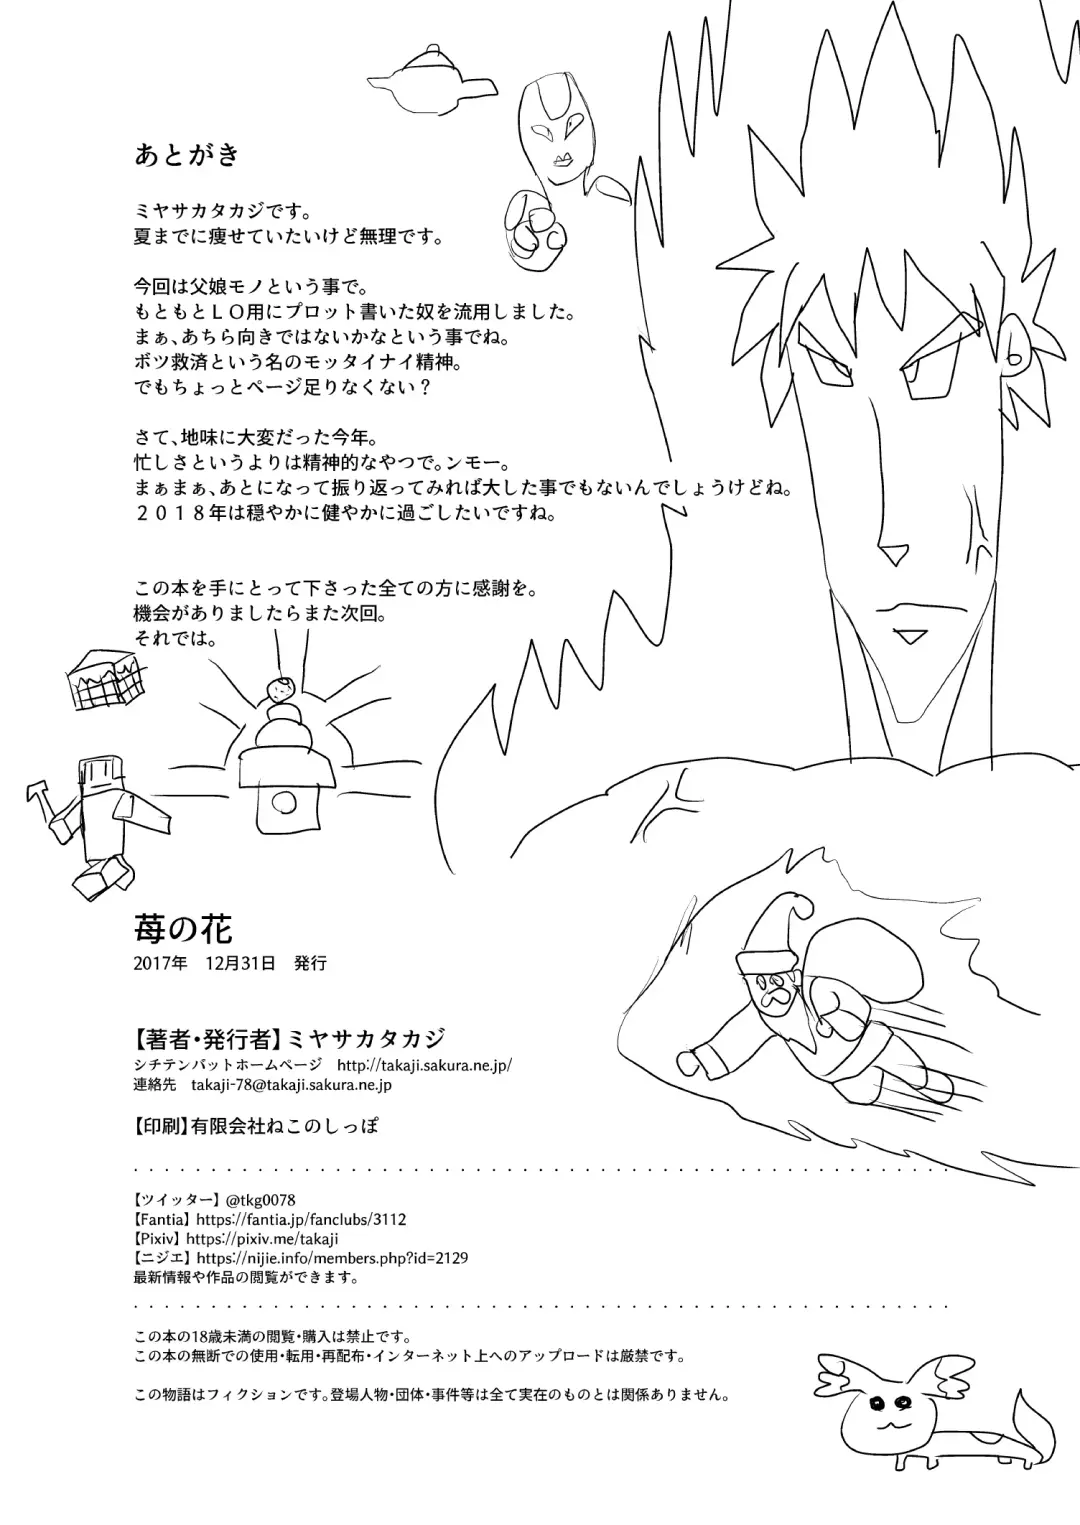 あとがき
ミヤサカタカジです。
夏までに痩せていたいけど無理です。
今回は父娘モノという事で。
もともとＬＯ用にプロット書いた奴を流用しました。
まぁ、あちら向きではないかなという事でね。
ボツ救済という名のモッタイナイ精神。
でもちょっとページ足りなくない？
さて、地味に大変だった今年。
忙しさというよりは精神的なやつで。ンモー。
まぁまぁ、あとになって振り返ってみれば大した事でもないんでしょうけどね。
２０１８年は穏やかに健やかに過ごしたいですね。
この本を手にとって下さった全ての方に感謝を。
機会がありましたらまた次回。
それでは。
苺の花
2017年　12月31日　発行
【著者・発行者】ミヤサカタカジ
シチテンバットホームページ　http://takaji.sakura.ne.jp/
連絡先　takaji-78@takaji.sakura.ne.jp
【印刷】有限会社ねこのしっぽ
【ツイッター】@tkg0078
【Fantia】https://fantia.jp/fanclubs/3112
【Pixiv】https://pixiv.me/takaji
【ニジエ】https://nijie.info/members.php?id=2129
最新情報や作品の閲覧ができます。
この本の18歳未満の閲覧・購入は禁止です。
この本の無断での使用・転用・再配布・インターネット上へのアップロードは厳禁です。
この物語はフィクションです。登場人物・団体・事件等は全て実在のものとは関係ありません。